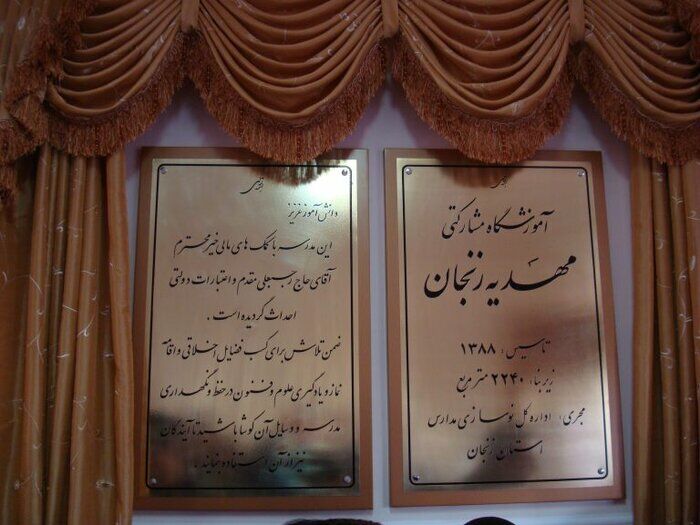 آموزشگاه مشارکتی
مهدیه زنجان
تاسیس: ۱۳۸۸
زیربنا: ۲۲۴۰ مترمربع
مجری: اداره کل نوسازی مدارس
استان زنجان
دانش آموز عزیز
این مدرسه با کمک های مالی خیر محترم
آقای حاج رجبعلی مقدم و اعتبارات دولتی
احداث گردیده است .
ضمن تلاش برای کسب فضایل اخلاقی و اقامه
نماز و یادگیری علوم و فنون در حفظ و نگهداری
مدرسه و وسایل آن کوشا باشید تا آیندگان
نیز از آن استفاده نمایند .